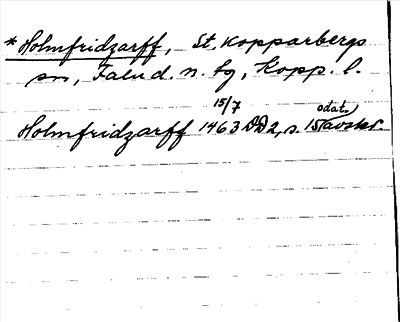 * Holmfridzarff, St. Kopparbergs
sn, Falu d. n. tg, Kopp. l.
15/7 odat.
Holmfridzarff 1463 DD2, s. 15 avskr.